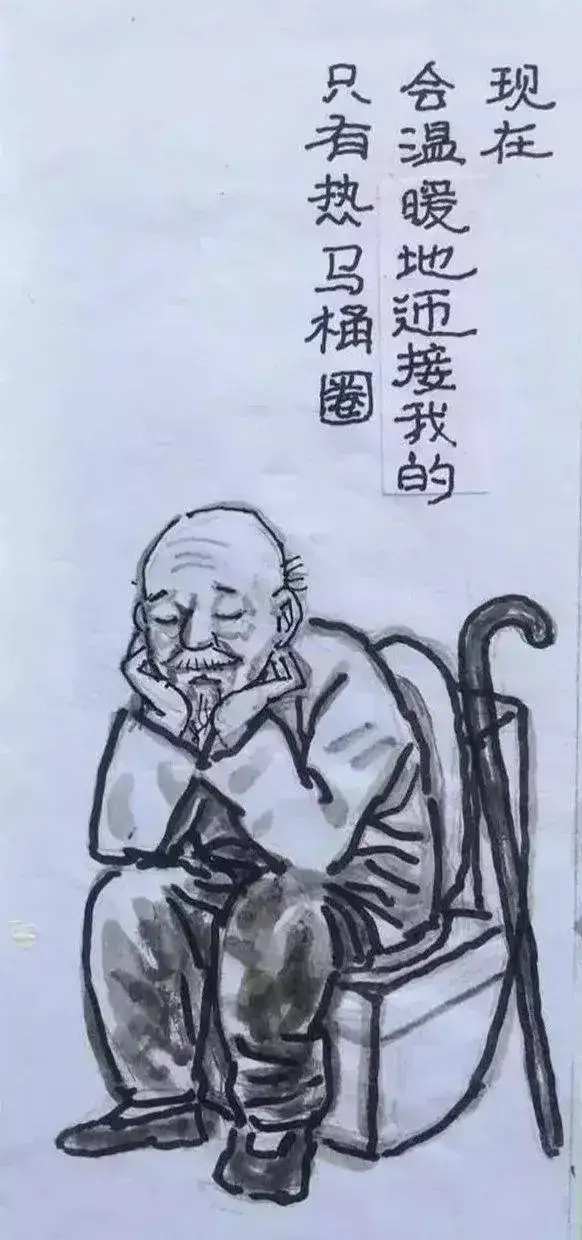 现在
会温暖地迊接我的
只有热马桶圈